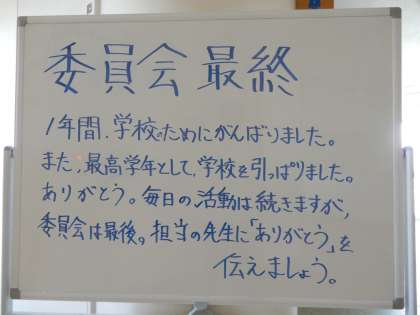 委員会 最終
1年間、学校のためにがんばりました。
また、最高学年として、学校を引っぱりました。
ありがとう。毎日の活動は続きますが、
委員会は最後。担当の先生に「ありがとう」を
伝えましょう。